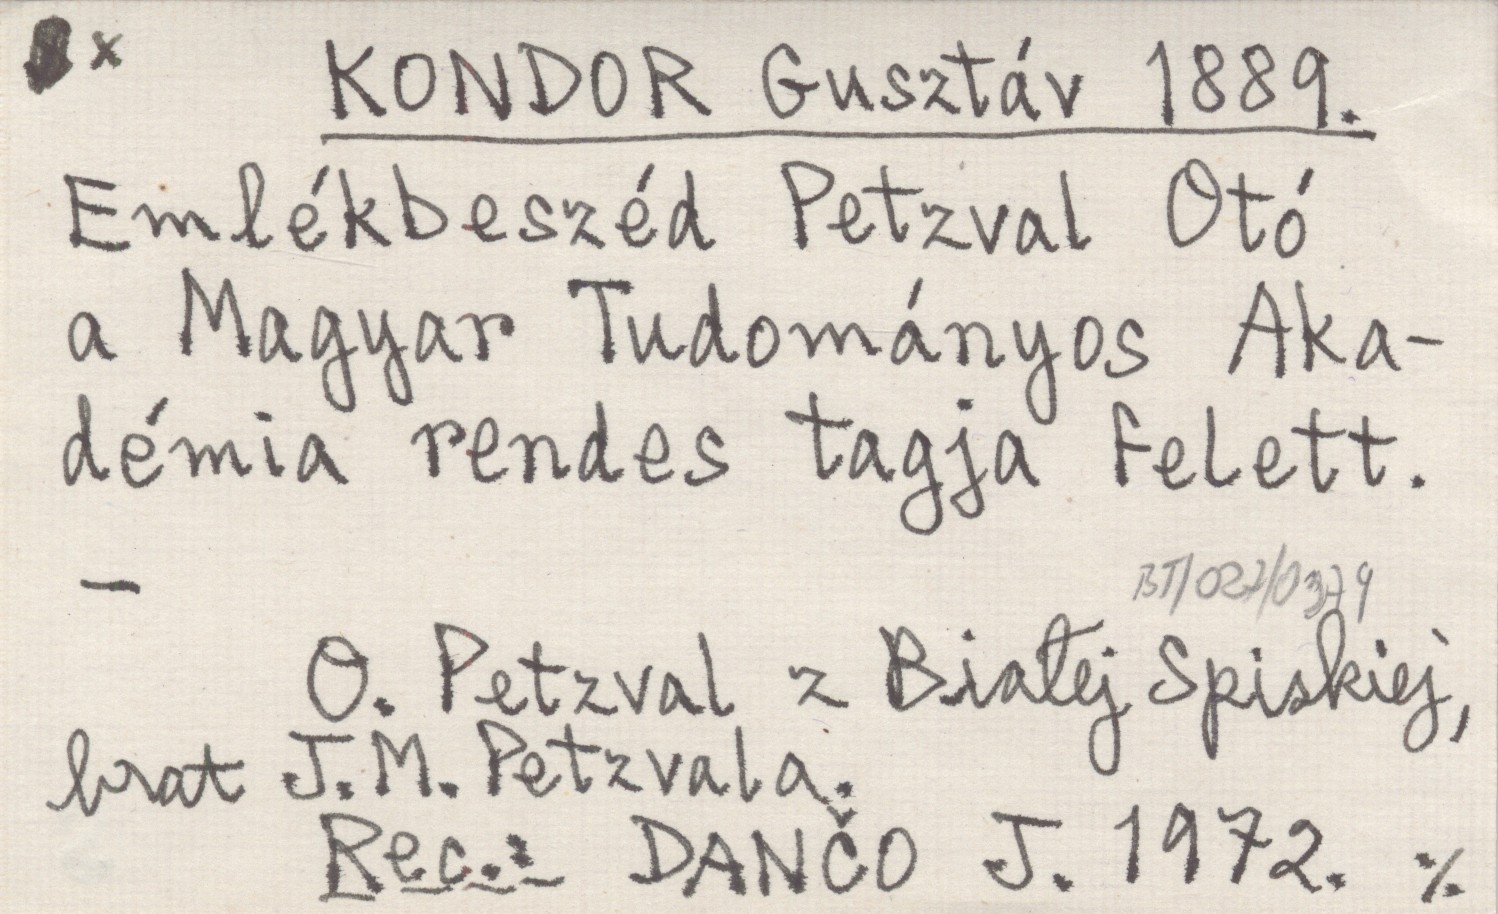 x KONDOR Gusztáv 1889.
Emlékbeszéd Petzval Otó
a Magyar Tudományos Aka-
démia rendes tagja felett.
—
BT/027/0379
O. Petzval z Białej Spiskiej,
brat J.M. Petzvala.
Rec.: DANČO J. 1972. ./.